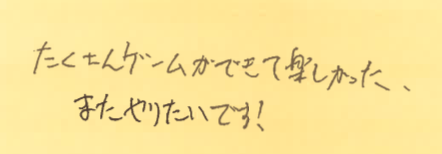 たくさんゲームができて楽しかった、
またやりたいです!